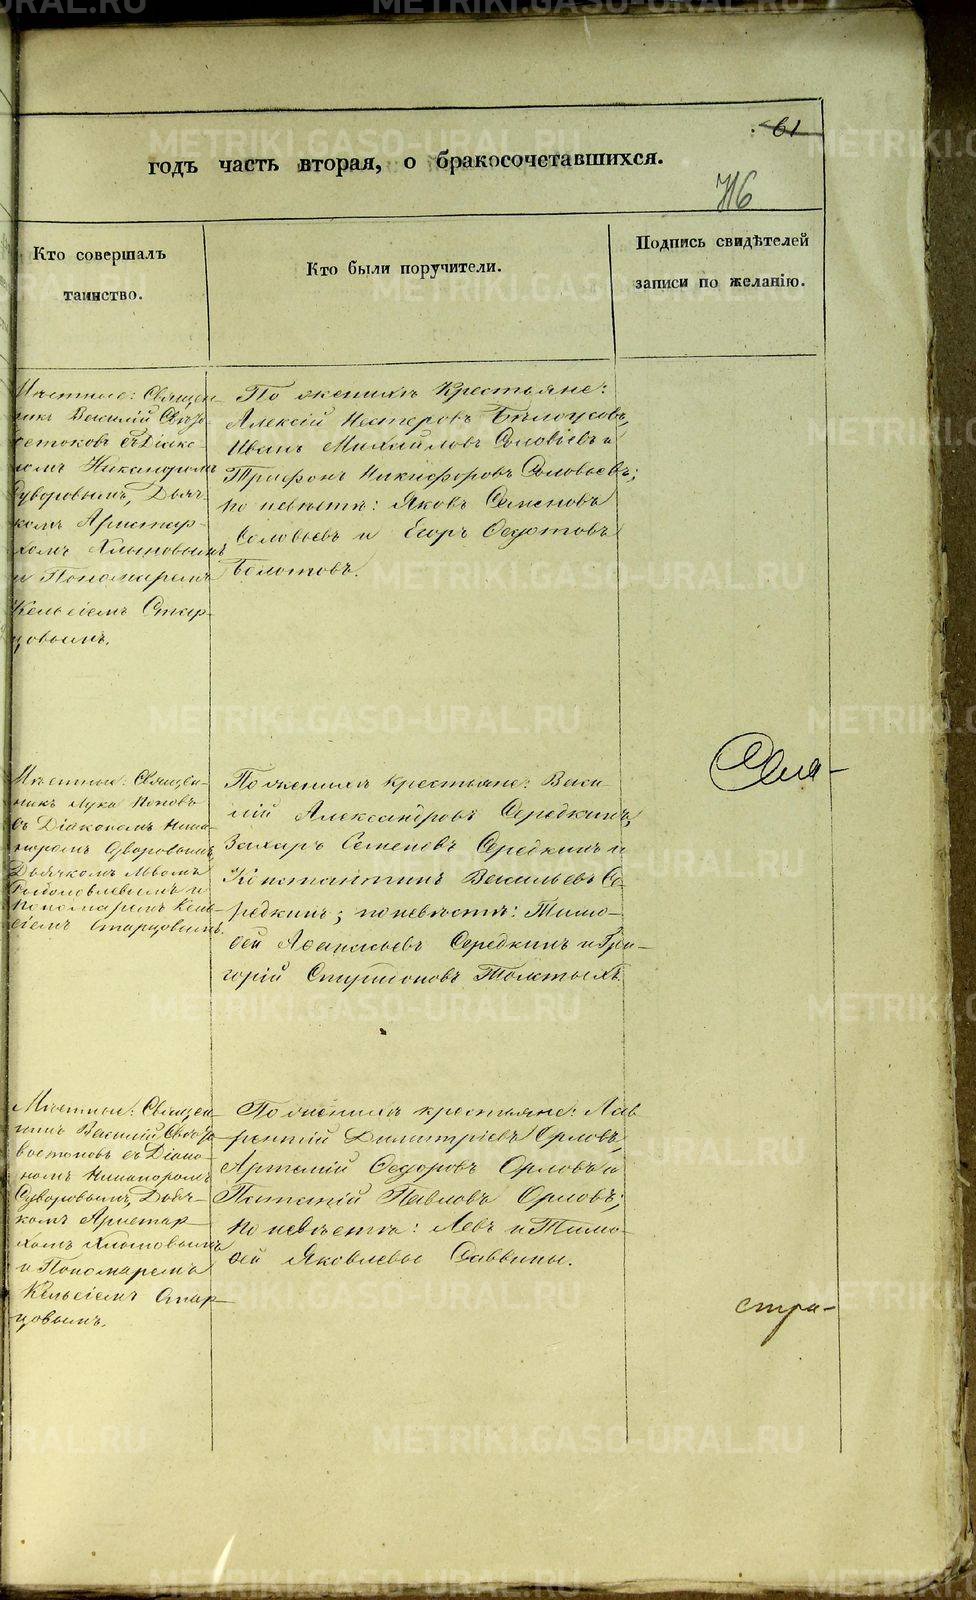 61
годъ часть вторая, о бракосочетавшихся.
716
Кто совершалъ
таинство.
Кто были поручители.
Подпись свидѣтелей
записи по желанію.
Мѣстные: Священ-
никъ Василій Свѣто-
востоковъ съ Діако-
номъ Никаноромъ
Суворовымъ, Дьяч-
комъ Аристар-
хомъ Хлыновымъ
и Пономаремъ
Кельсіемъ Стар-
цовымъ.
По женихѣ Крестьяне:
Алексій Нестеровъ Бѣлоусовъ,
Иванъ Михайловъ Соловьевъ и
Трифонъ Никифоровъ Соловьевъ;
по невѣстѣ: Яковъ Семеновъ
Соловьевъ и Егоръ Ѳедотовъ
Болотовъ.
Мѣстные: Священ-
никъ Лука Поповъ
съ Діакономъ Ника-
норомъ Суворовымъ,
Дьячкомъ Львомъ
и
Пономаремъ Кель-
сіемъ Старцовымъ.
По женихѣ крестьяне: Васи-
лій Александровъ Середкинъ,
Захаръ Семеновъ Середкинъ и
Константинъ Васильевъ Се-
редкинъ; по невѣстѣ: Тимо-
ѳей Аѳанасьевъ Середкинъ и Гри-
горій Спиридоновъ Толстыхъ.
Мѣстные: Священ-
никъ Василій Свѣто-
востоковъ съ Діако-
номъ Никаноромъ
Суворовымъ, Дьяч-
комъ Аристар-
хомъ Хлыновымъ
и Пономаремъ
Кельсіемъ Стар-
цовымъ.
По женихѣ крестьяне: Лав-
рентій Димитріевъ Орловъ,
Артемій Ѳедоровъ Орловъ и
Павловъ Орловъ;
по невѣстѣ: Левъ и Тимо-
ѳей Яковлевы Саввины.
стра-
METRIKI.GASO-URAL.RU